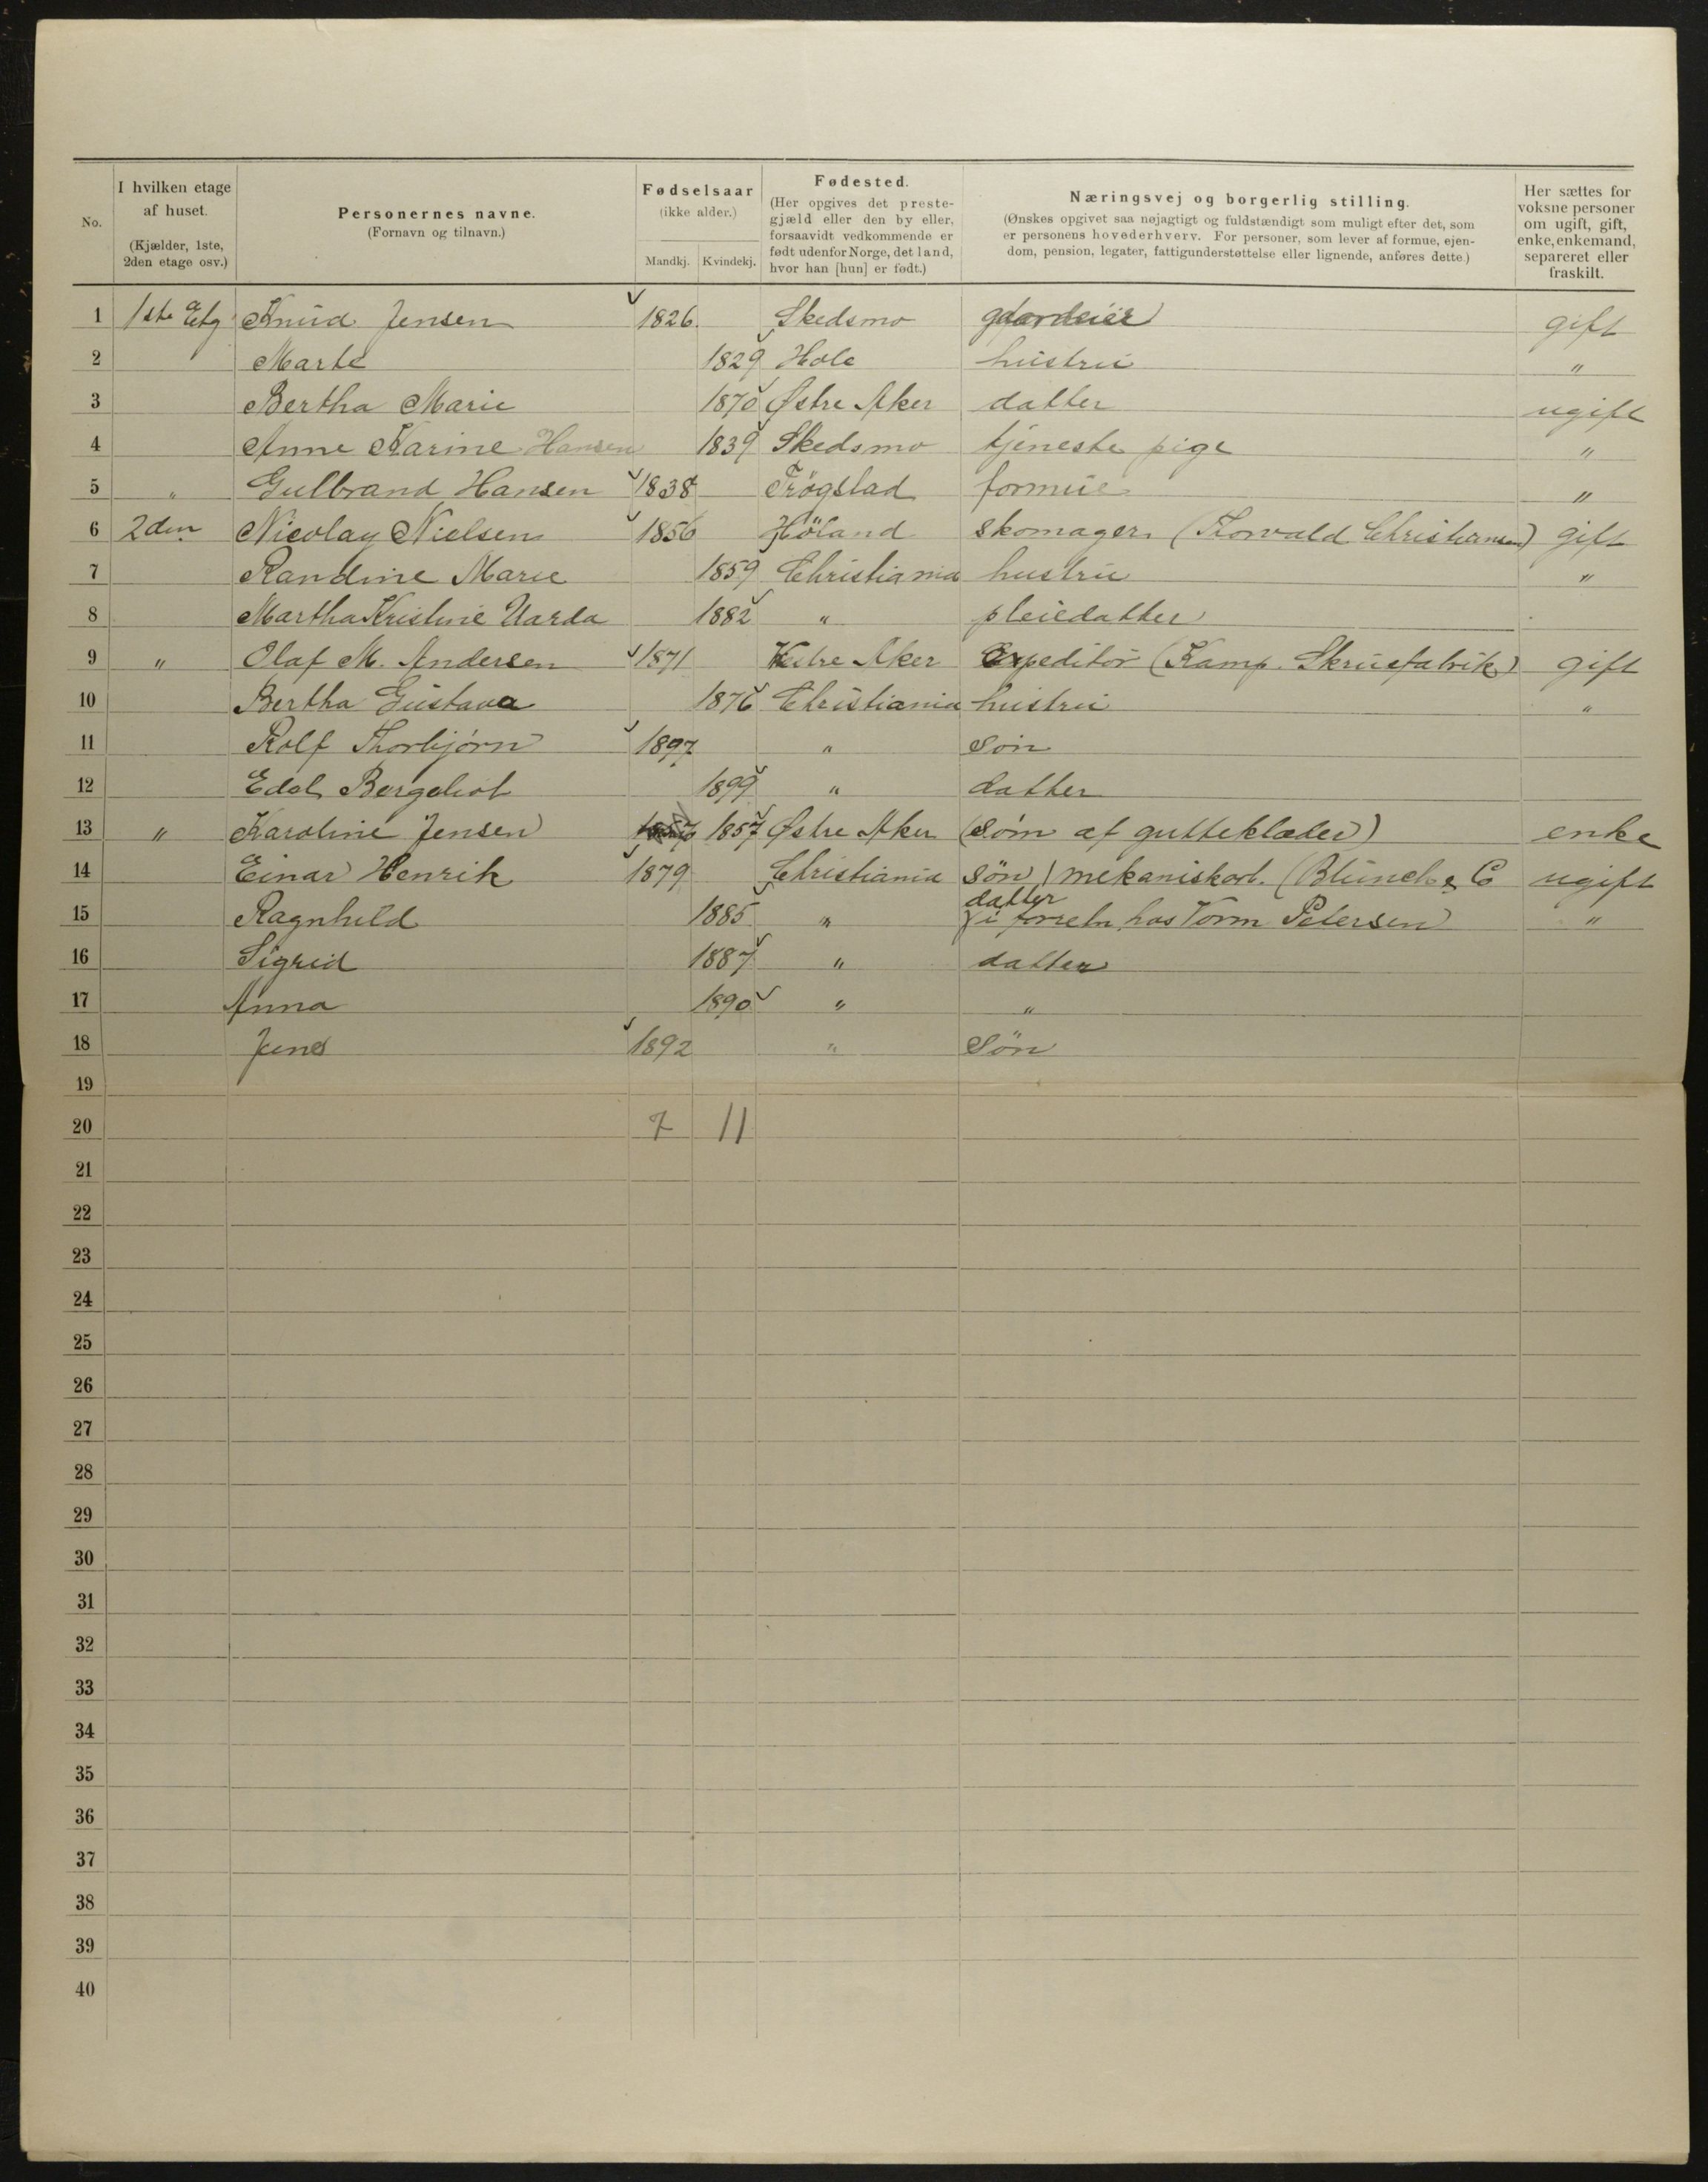 No. I hvilken etage af huset. (Kjælder, 1ste, 2den etage osv.) Personernes navne. (Fornavn og tilnavn.) Fødselsaar (ikke alder.) Mandkj. Kvindekj. Fødested. (Her opgives det prestegjæld eller den by eller, forsaavidt vedkommende er født udenfor Norge, det land, hvor han [hun] er født.) Næringsvej og borgerlig stilling. (Ønskes opgivet saa nøjagtigt og fuldstændigt som muligt efter det, som er personens hovederhverv. For personer, som lever af formue, ejendom, pension, legater, fattigunderstøttelse eller lignende, anføres dette.) Her sættes for voksne personer om ugift, gift, enke, enkemand, separeret eller fraskilt.
1 1ste Etg Knud Jensen 1826 Skedsmo gaardeier gift
2 Marte 1829 Hole hustru "
3 Bertha Marie 1870 Østre Aker datter ugift
4 Anne Karine Hansen 1839 Skedsmo tjeneste pige "
5 " Gulbrand Hansen 1838 Trøgstad formue "
6 2den Nicolay Nielsen 1856 Høland skomager (Thorvald Christiansen) gift
7 Randine Marie 1859 Christiania hustru "
8 Martha Kristine Uarda 1882 " pleiedatter
9 " Olaf M. Andersen 1871 Vestre Aker Expeditør (Kamp. Skruefabrik) gift
10 Bertha Gustava 1876 Christiania hustru "
11 Rolf Thorbjørn 1897 " Søn
12 Edel Bergeliot 1899 " datter
13 " Karoline Jensen 1857 Østre Aker (Søm af gutteklæder) enke
14 Einar Henrik 1879 Christiania Søn / mekanisk arb. (Blunck & C ugift
15 Ragnhild 1885 " datter (i forretn. hos Vorm Petersen) "
16 Sigrid 1887 " datter
17 Anna 1890 " "
18 Jens 1892 " Søn
19
20 7 11
21
22
23
24
25
26
27
28
29
30
31
32
33
34
35
36
37
38
39
40